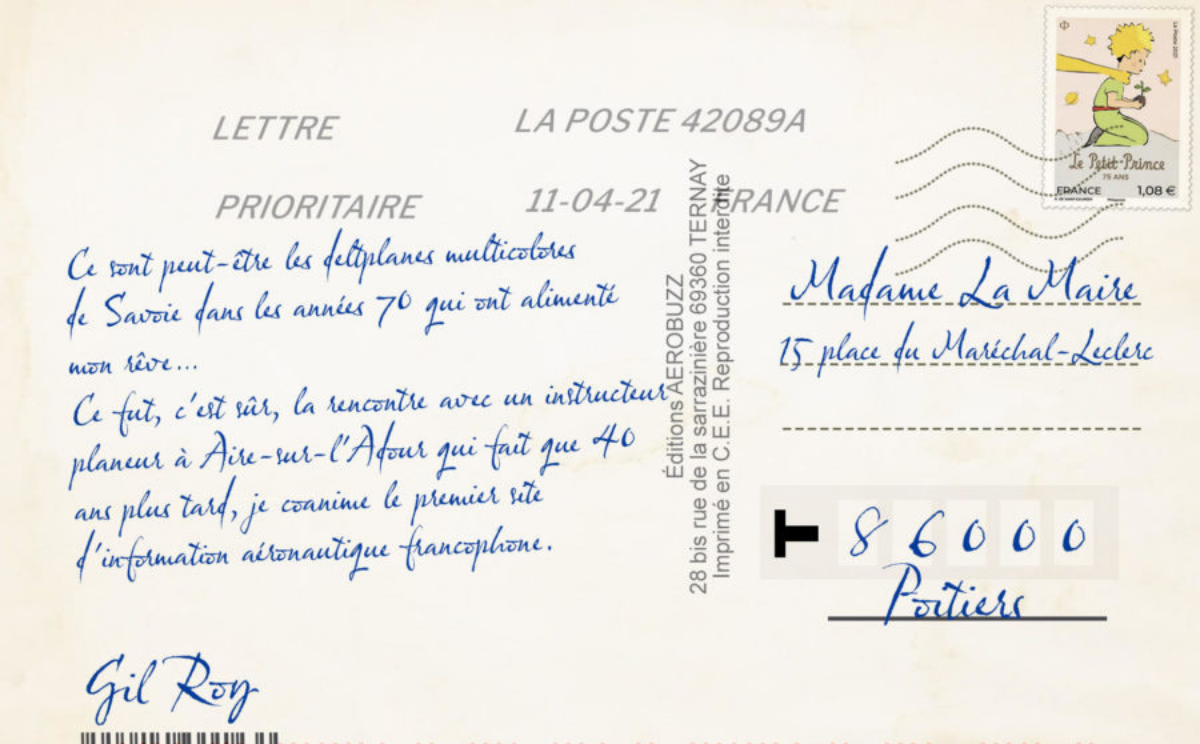 LETTRE LA POSTE 42089A
PRIORITAIRE 11-04-21 FRANCE
Ce sont peut-être les deltplanes multicolores
de Savoie dans les années 70 qui ont alimenté
mon rêve...
Ce fut, c'est sûr, la rencontre avec un instructeur
planeur à Aire-sur-l'Adour qui fait que 40
ans plus tard, je coanime le premier site
d'information aéronautique francophone.
Gil Roy
Éditions AEROBUZZ
28 bis rue de la sarrazinière 69360 TERNAY
Imprimé en C.E.E. Reproduction interdite
Le Petit Prince
75 ANS
FRANCE 1,08 €
Madame La Maire
15 place du Maréchal-Leclerc
T 86000
Poitiers